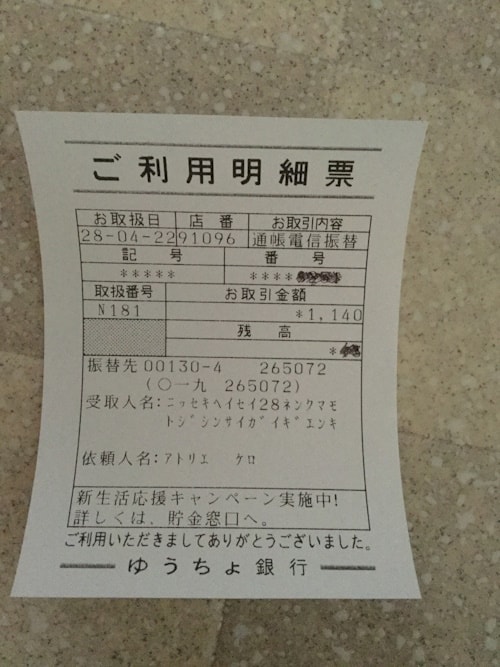 ご利用明細票
お取扱日 店番 お取引内容
28-04-22 91096 通帳電信振替
記号 番号
***** ****
取扱番号 お取引金額
N181 *1,140
残高
*
振替先 00130-4 265072
(〇一九 265072)
受取人名:ニッセキヘイセイ28ネンクマモ
トジシンサイガイギエンキ
依頼人名:アトリエ ケロ
新生活応援キャンペーン実施中!
詳しくは、貯金窓口へ。
ご利用いただきましてありがとうございました。
ゆうちょ銀行